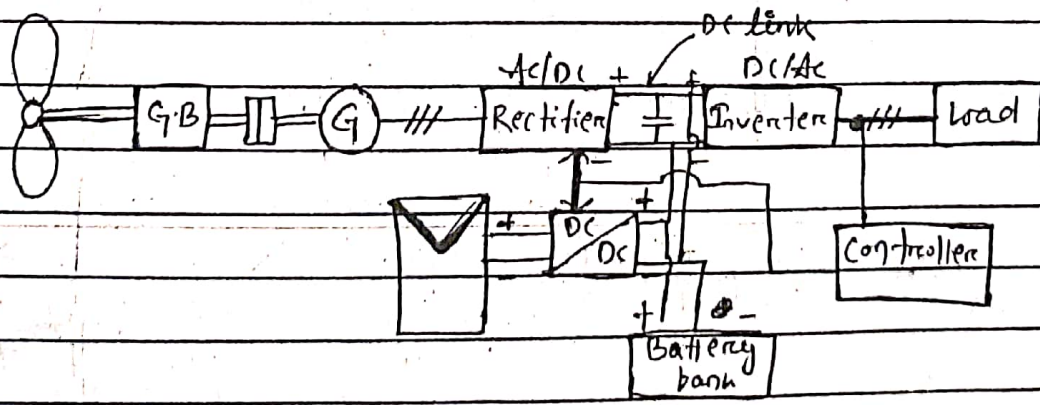 DC link
AC/DC + + DC/AC
G.B G /// Rectifier Inverter /// Load
- -
+ DC +
DC
Controller
+ -
Battery
bank